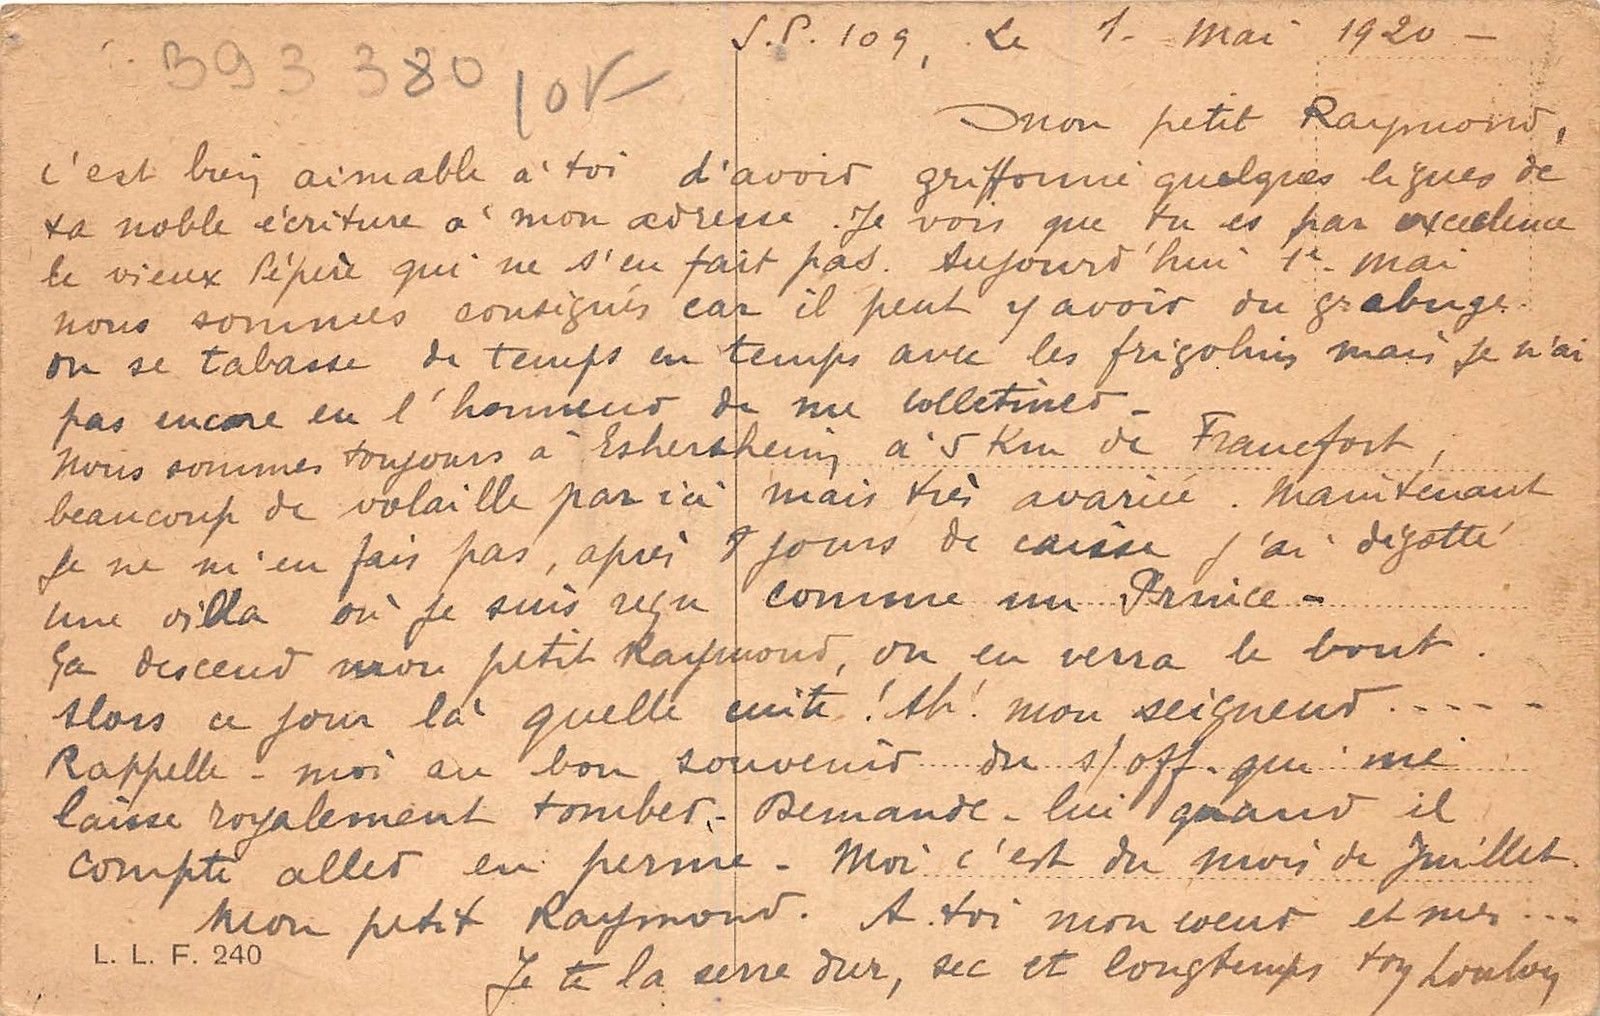 S.P. 109, Le 1- Mai 1920 -
393 380
10F
Mon petit Raymond,
c'est bien aimable à toi d'avoir griffonné quelques lignes de
ta noble écriture à mon adresse. Je vois que tu es par excellence
le vieux Pépère qui ne s'en fait pas. Aujourd'hui 1er Mai
nous sommes consignés car il peut y avoir du grabuge.
on se tabasse de temps en temps avec les frigolins mais je n'ai
pas encore eu l'honneur de me colletiner -
Nous sommes toujours à Eshersheim à 5 Km de Francfort,
beaucoup de volaille par ici mais très avariée. Maintenant
je ne m'en fais pas, après 8 jours de caisse j'ai dégotté
une villa où je suis reçu comme un Prince -
Ça descend mon petit Raymond, on en verra le bout.
Alors ce jour là quelle cuite ! Ah ! mon seigneur.....
Rappelle-moi au bon souvenir du s/off. qui me
laisse royalement tomber. - Demande-lui quand il
compte aller en perme - Moi c'est du mois de Juillet.
Mon petit Raymond. A toi mon coeur et mes ...
Je te la serre dur, sec et longtemps ton
L. L. F. 240